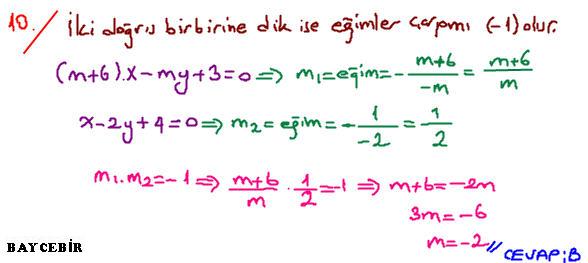 10. İki doğru birbirine dik ise eğimler çarpımı (-1) olur.
(m+6).x-my+3=0 ⇒ m₁=eğim=-\frac{m+6}{-m}=\frac{m+6}{m}
x-2y+4=0 ⇒ m₂=eğim=-\frac{1}{-2}=\frac{1}{2}
m₁.m₂=-1 ⇒ \frac{m+6}{m}.\frac{1}{2}=-1 ⇒ m+6=-2m
3m=-6
m=-2//
CEVAP:B
BAYCEBİR